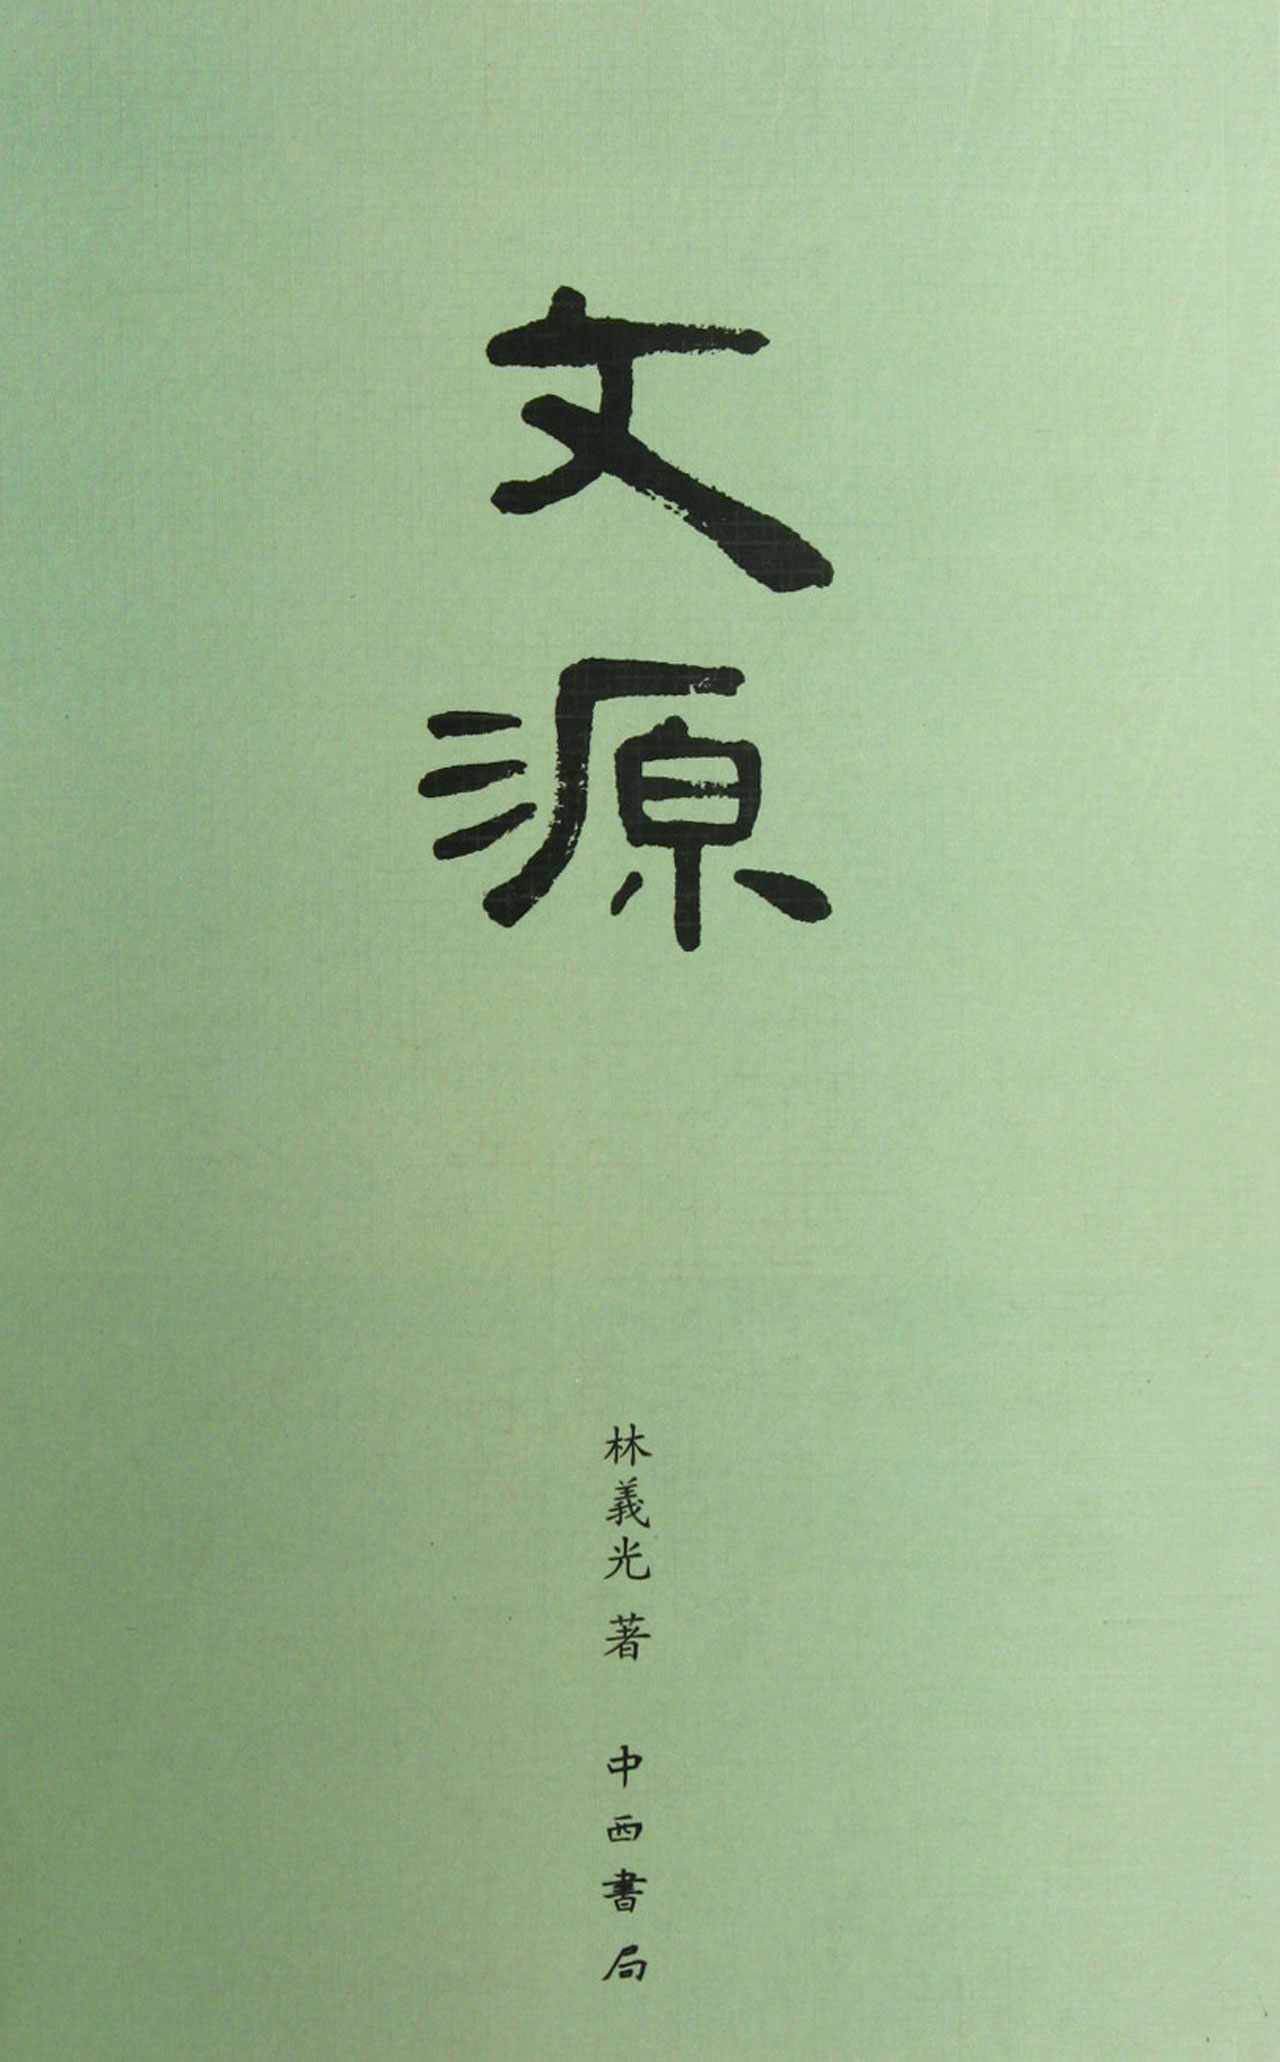 文源
林義光 著
中西書局